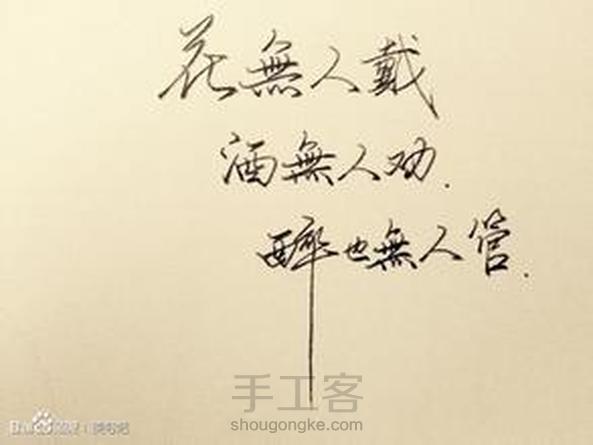 花無人戴
酒無人劝.
醉也無人管.
手工客
shougongke.com